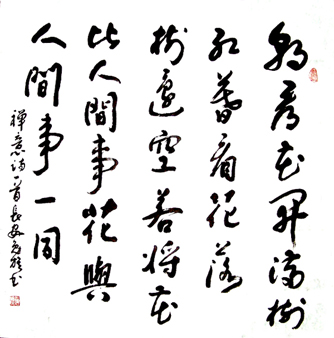 朝看花開滿樹
紅暮看花落
樹還空若將花
比人間事花與
人間事一同
禪意詩一首長